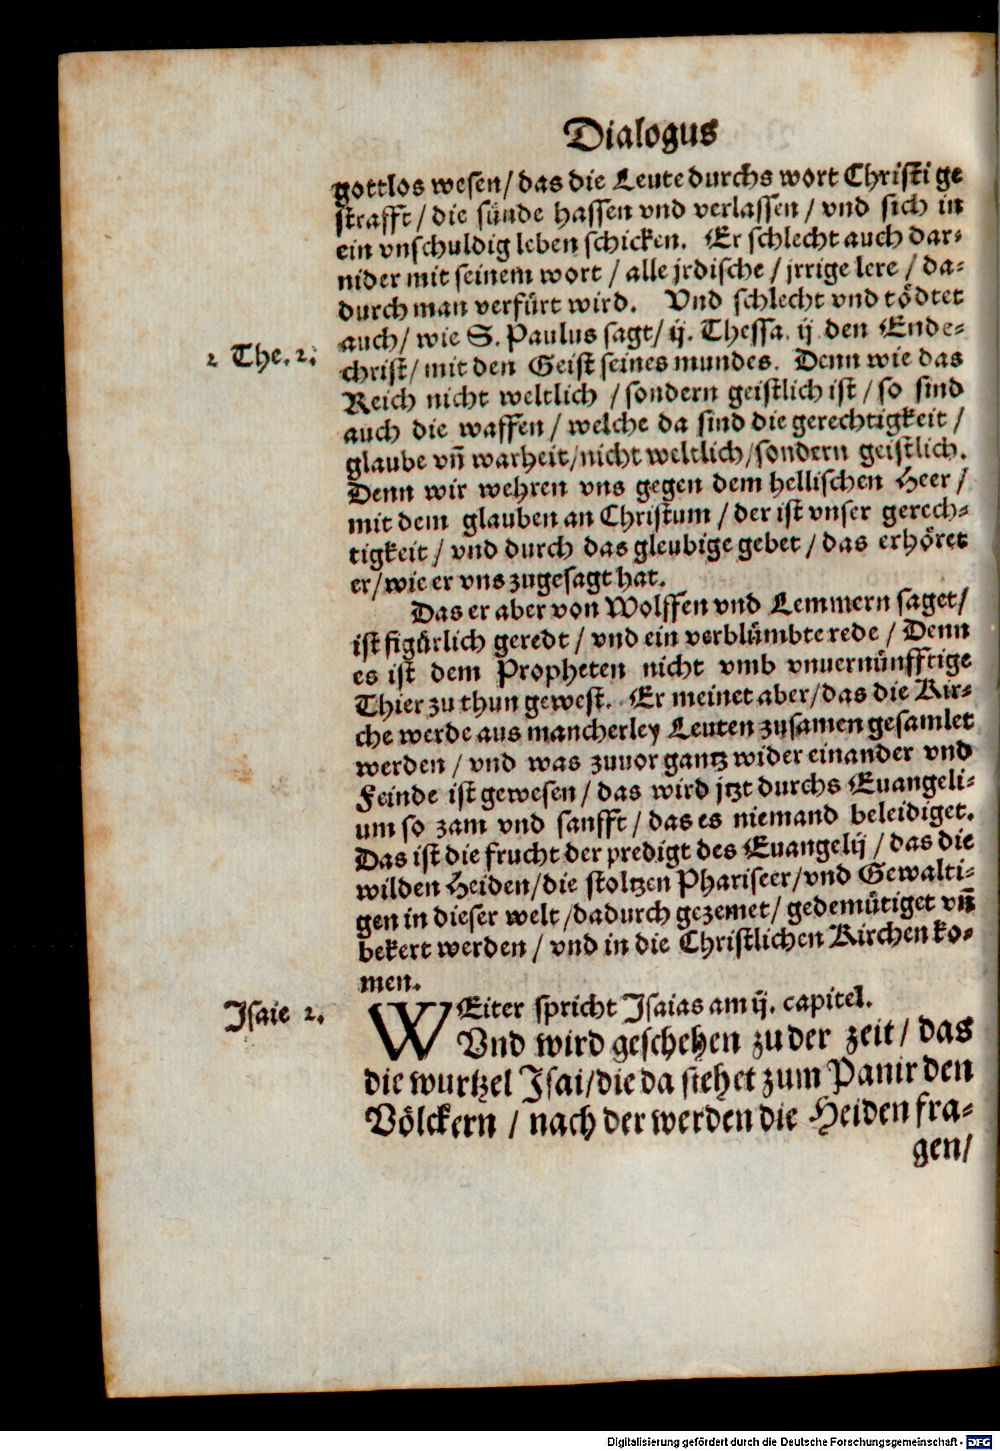 Dialogus
gottlos wesen/ das die Leute durchs wort Christi ge
strafft/ die sünde hassen vnd verlassen/ vnd sich in
ein vnschuldig leben schicken. Er schlecht auch dar-
nider mit seinem wort/ alle jrdische/ jrrige lere/ da-
durch man verfürt wird. Vnd schlecht vnd tödtet
auch/ wie S. Paulus sagt/ ij. Thessa. ij. den Ende-
2 The. 2.
christ/ mit den Geist seines mundes. Denn wie das
Reich nicht weltlich/ sondern geistlich ist/ so sind
auch die waffen/ welche da sind die gerechtigkeit/
glaube vñ warheit/ nicht weltlich/ sondern geistlich.
Denn wir wehren vns gegen dem hellischen Heer/
mit dem glauben an Christum/ der ist vnser gerech-
tigkeit/ vnd durch das gleubige gebet/ das erhöret
er/ wie er vns zugesagt hat.
Das er aber von Wolffen vnd Lemmern saget/
ist figürlich geredt/ vnd ein verblümbte rede/ Denn
es ist dem Propheten nicht vmb vnuernünfftige
Thier zu thun gewest. Er meinet aber/ das die Kir-
che werde aus mancherley Leuten zusamen gesamlet
werden/ vnd was zuuor gantz wider einander vnd
Feinde ist gewesen/ das wird jtzt durchs Euangeli-
um so zam vnd sanfft/ das es niemand beleidiget.
Das ist die frucht der predigt des Euangelij/ das die
wilden Heiden/ die stoltzen Phariseer/ vnd Gewalti-
gen in dieser welt/ dadurch gezemet/ gedemütiget vñ
bekert werden/ vnd in die Christlichen Kirchen ko-
men.
Isaie 2.
WEiter spricht Isaias am ij. capitel.
Vnd wird geschehen zu der zeit/ das
die wurtzel Isai/ die da stehet zum Panir den
Völckern/ nach der werden die Heiden fra-
gen/
Digitalisierung gefördert durch die Deutsche Forschungsgemeinschaft - DFG